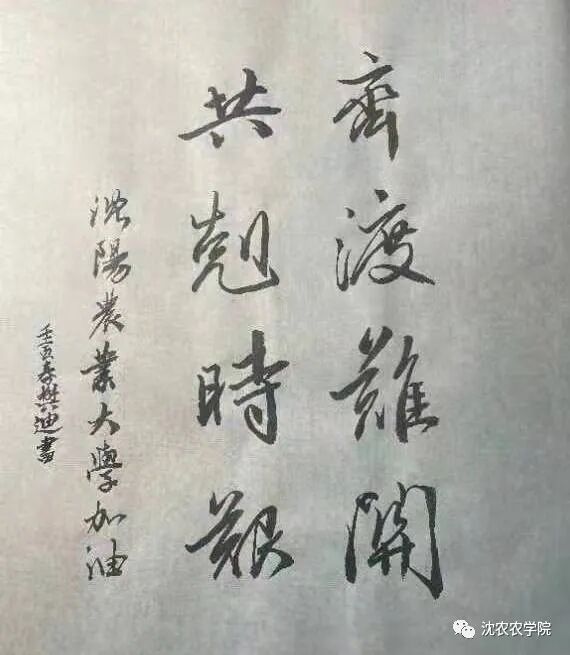 齊渡難關
共剋時艱
瀋陽農業大學加油
壬寅春樊迪書
沈农农学院